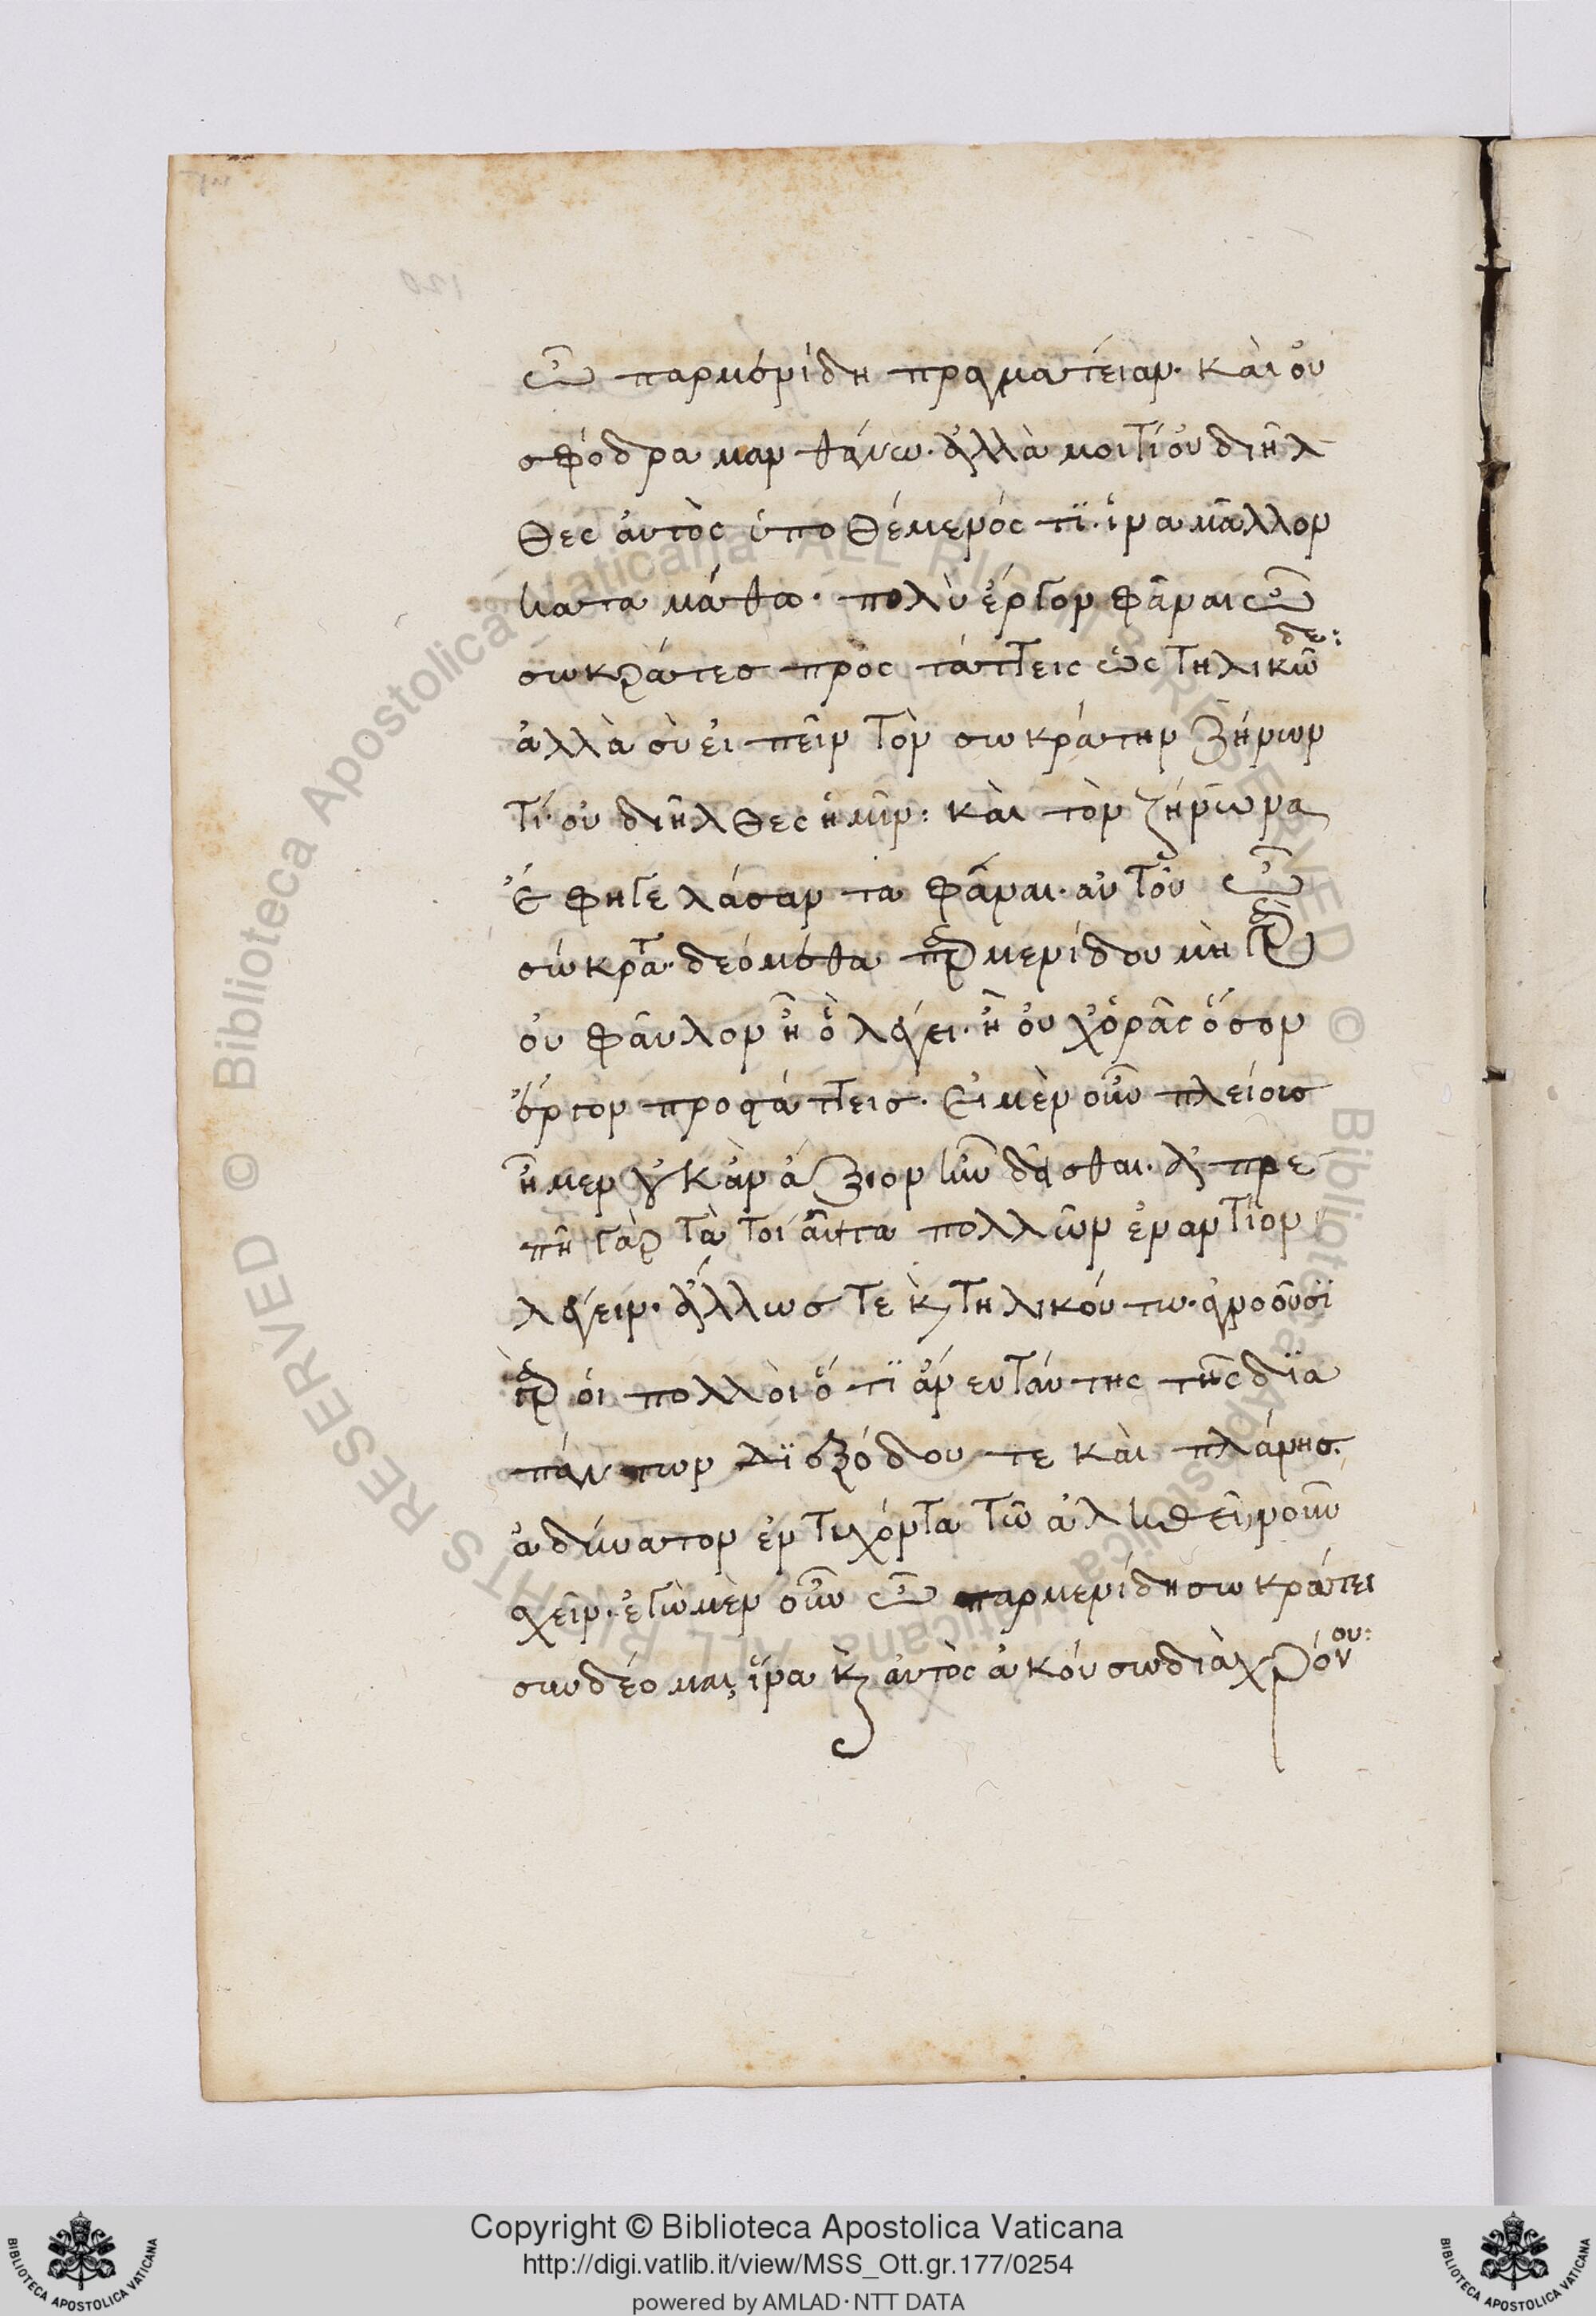 ὦ παρμενίδη πραγματείαν. καὶ οὐ
σφόδρα μανθάνω. ἀλλά μοι τί οὐ διῆλ
θες αὐτὸς ὑποθέμενός τϊ. ἵνα μᾶλλον
καταμάθω. πολὺ ἔργον φᾶναι ὦ
σώκρατες προςτάττεις ὡς τηλικῶ
δε:
ἀλλὰ σὺ εἰπεῖν τὸν σωκράτην ζήνων
τί οὐ διῆλθες ἡμῖν: καὶ τὸν ζήνωνα
ἔφη γελάσαντα φᾶναι. αὐτοῦ ὦ
σώκρατ. δεόμεθα παρμενίδου μὴ γὰρ
οὐ φαῦλον ἦ ὃ λέγει. ἢ οὐχ ὁρᾶς ὅσον
ἔργον προςάττεις. εἰ μὲν οὖν πλείους
ἦμεν οὐκ ἂν ἄξιον ἦν δεῖσθαι. ἀπρε
πῆ γὰρ τὰ τοιαῦτα πολλῶν ἐναντίον
λέγειν. ἄλλως τε κ τηλικούτω. ἀγνοοῦσϊ
γὰρ οἱ πολλοὶ ὅτϊ ἄνευ ταύτης τῆς δϊὰ
πάντων διεξόδου τε καὶ πλάνης.
ἀδύνατον ἐντυχόντα τῶ ἀληθεῖ νοῦν
σχεῖν. ἐγὼ μὲν οὖν ὦ παρμενίδη σωκράτει
συνδέομαι, ἵνα κ αὐτὸς ἀκούσω διὰ χρόν
ου:
Copyright © Biblioteca Apostolica Vaticana
http://digi.vatlib.it/view/MSS_Ott.gr.177/0254
powered by AMLAD·NTT DATA